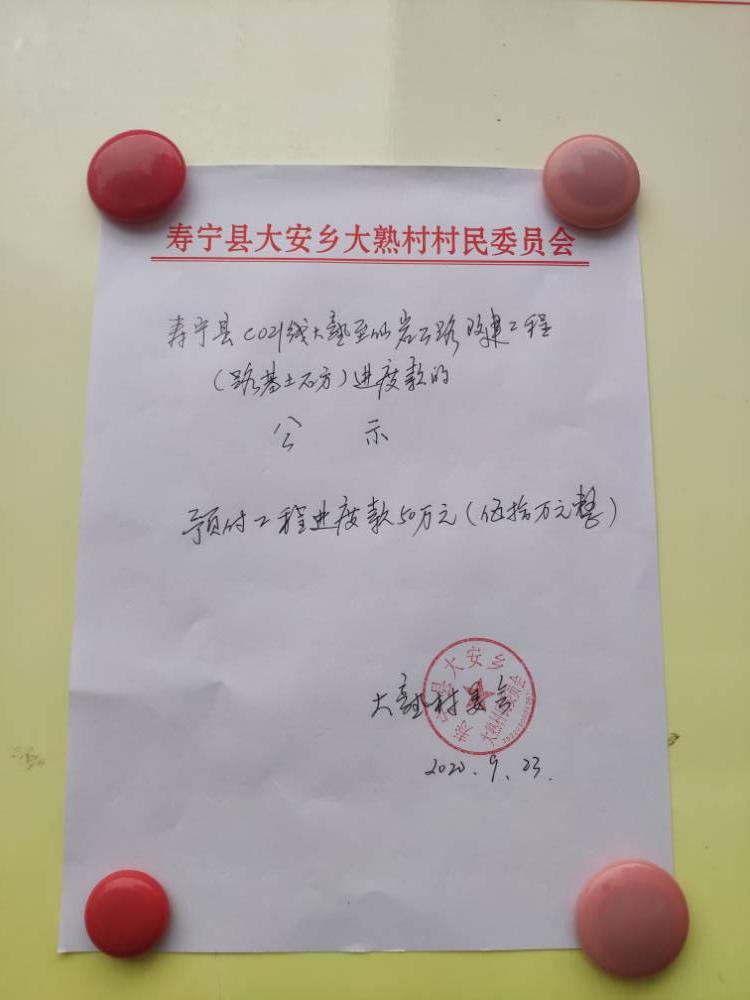 寿宁县大安乡大熟村村民委员会
寿宁县C021线大熟至仙岩公路改建工程
（路基土石方）进度款的
公 示
预付工程进度款50万元（伍拾万元整）
大熟村委会
2020.9.23.
寿宁县大安乡
大熟村村民委员会